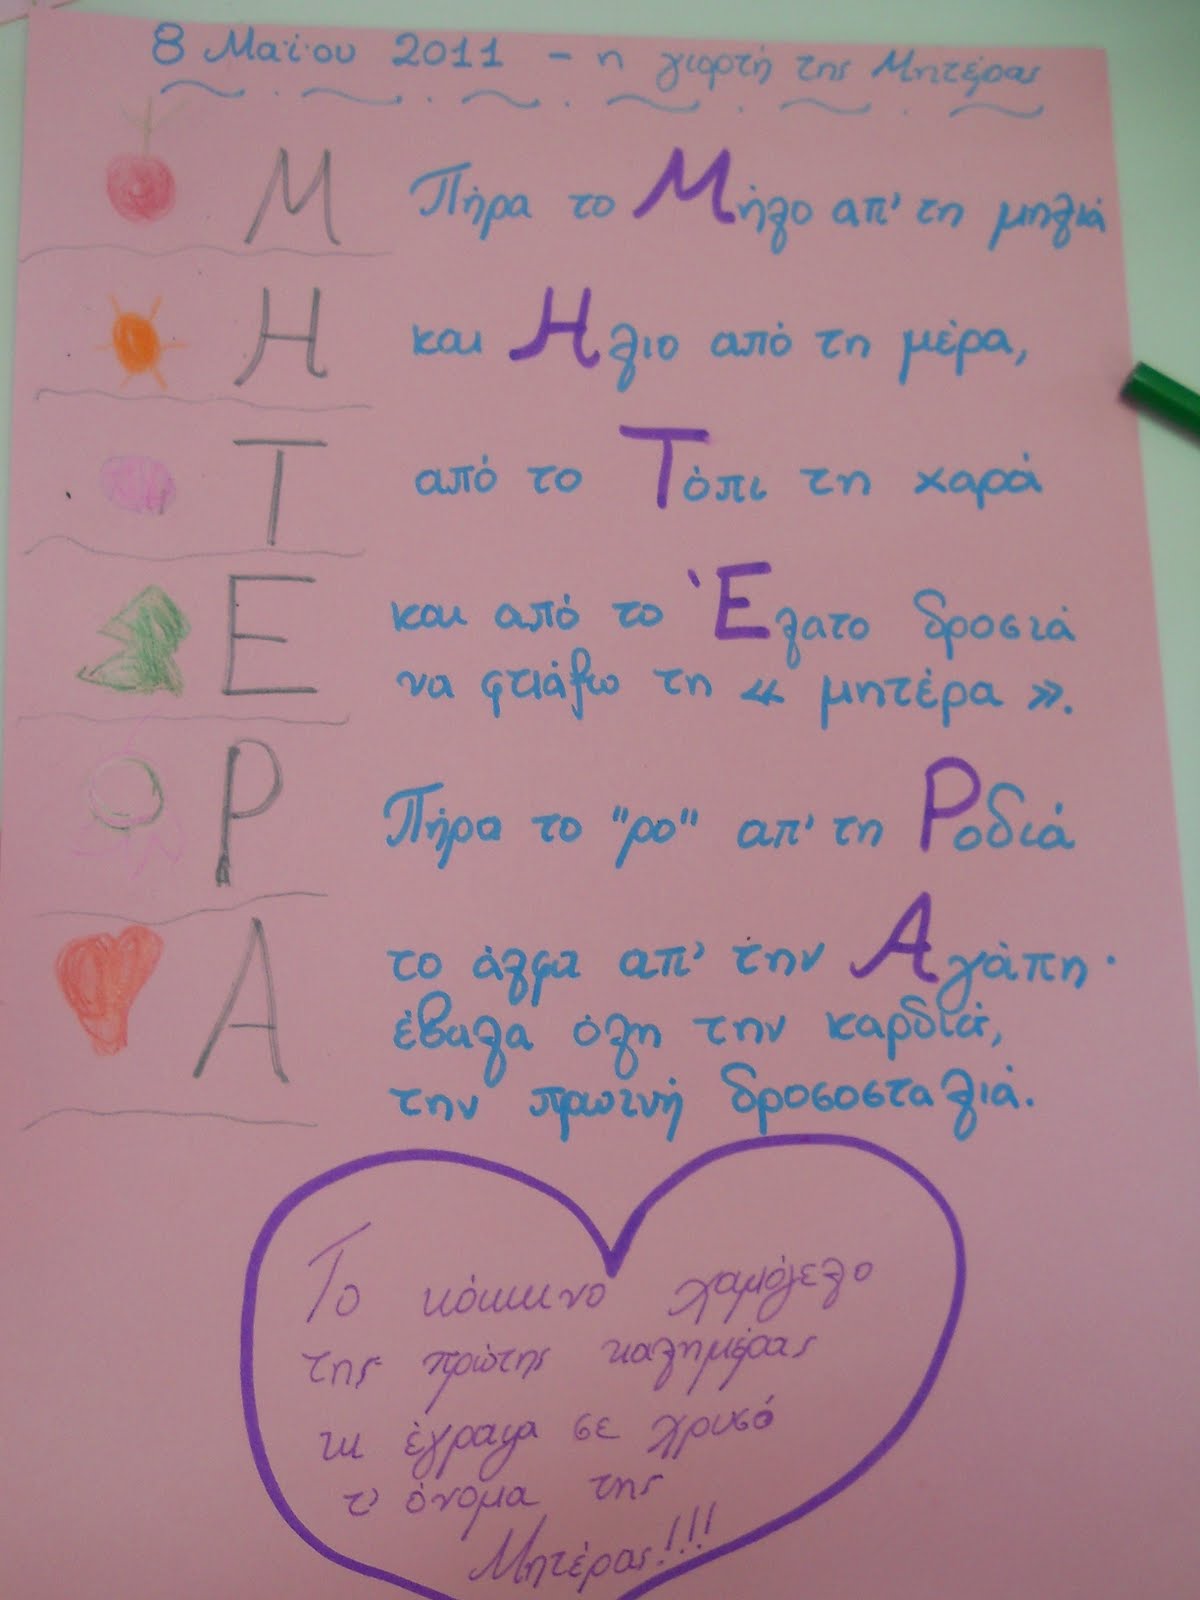 8 Μαΐου 2011 – η γιορτή της Μητέρας
Μ Πήρα το Μήλο απ' τη μηλιά
Η και Ηλιο από τη μέρα,
Τ από το Τόπι τη χαρά
Ε και από το Έλατο δροσιά
να φτιάξω τη « μητέρα ».
Ρ Πήρα το "ρο" απ' τη Ροδιά
Α το άλφα απ' την Αγάπη·
έβαλα όλη την καρδιά,
την πρωινή δροσοσταλιά.
Το κόκκινο χαμόγελο
της πρώτης καλημέρας
κι έγραψα σε χρυσό
τ' όνομα της
Μητέρας!!!